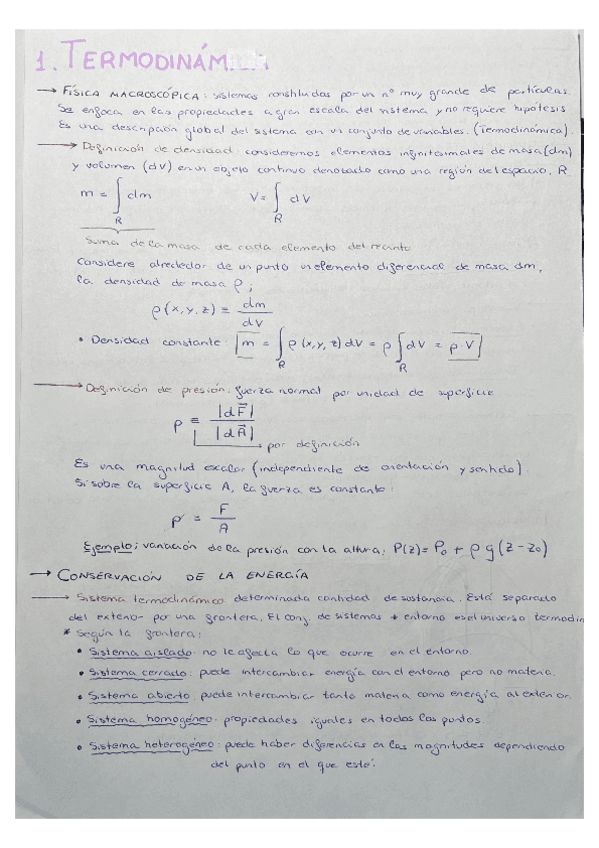 1. TERMODINÁMICA
→ FÍSICA MACROSCÓPICA: sistemas constituidas por un nº muy grande de partículas.
Se enfoca en las propiedades a gran escala del sistema y no requiere hipótesis
Es una descripción global del sistema con un conjunto de variables. (Termodinámica).
→ Definición de densidad: consideremos elementos infinitesimales de masa (dm)
y volumen (dV) en un objeto continuo denotado como una región del espacio, R
m = ∫_R dm V = ∫_R dV
Suma de la masa de cada elemento del recinto
Considere alrededor de un punto un elemento diferencial de masa dm,
la densidad de masa ρ;
ρ(x,y,z) = dm/dV
• Densidad constante: m = ∫_R ρ(x,y,z) dV = ρ ∫_R dV = ρ·V
→ Definición de presión: fuerza normal por unidad de superficie
P ≡ |dF⃗| / |dA⃗|
por definición
Es una magnitud escalar (independiente de orientación y sentido).
Si sobre la superficie A, la fuerza es constante:
P = F/A
Ejemplo: variación de la presión con la altura: P(z) = P₀ + ρ g (z - z₀)
→ CONSERVACIÓN DE LA ENERGÍA
→ Sistema termodinámico: determinada cantidad de sustancia. Está separado
del exterior por una frontera. El conj. de sistemas + entorno es el universo termodin
* Según la frontera:
• Sistema aislado: no le afecta lo que ocurre en el entorno.
• Sistema cerrado: puede intercambiar energía con el entorno pero no materia.
• Sistema abierto: puede intercambiar tanto materia como energía al exterior.
• Sistema homogéneo: propiedades iguales en todos los puntos
• Sistema heterogéneo: puede haber diferencias en las magnitudes dependiendo
del punto en el que esté.